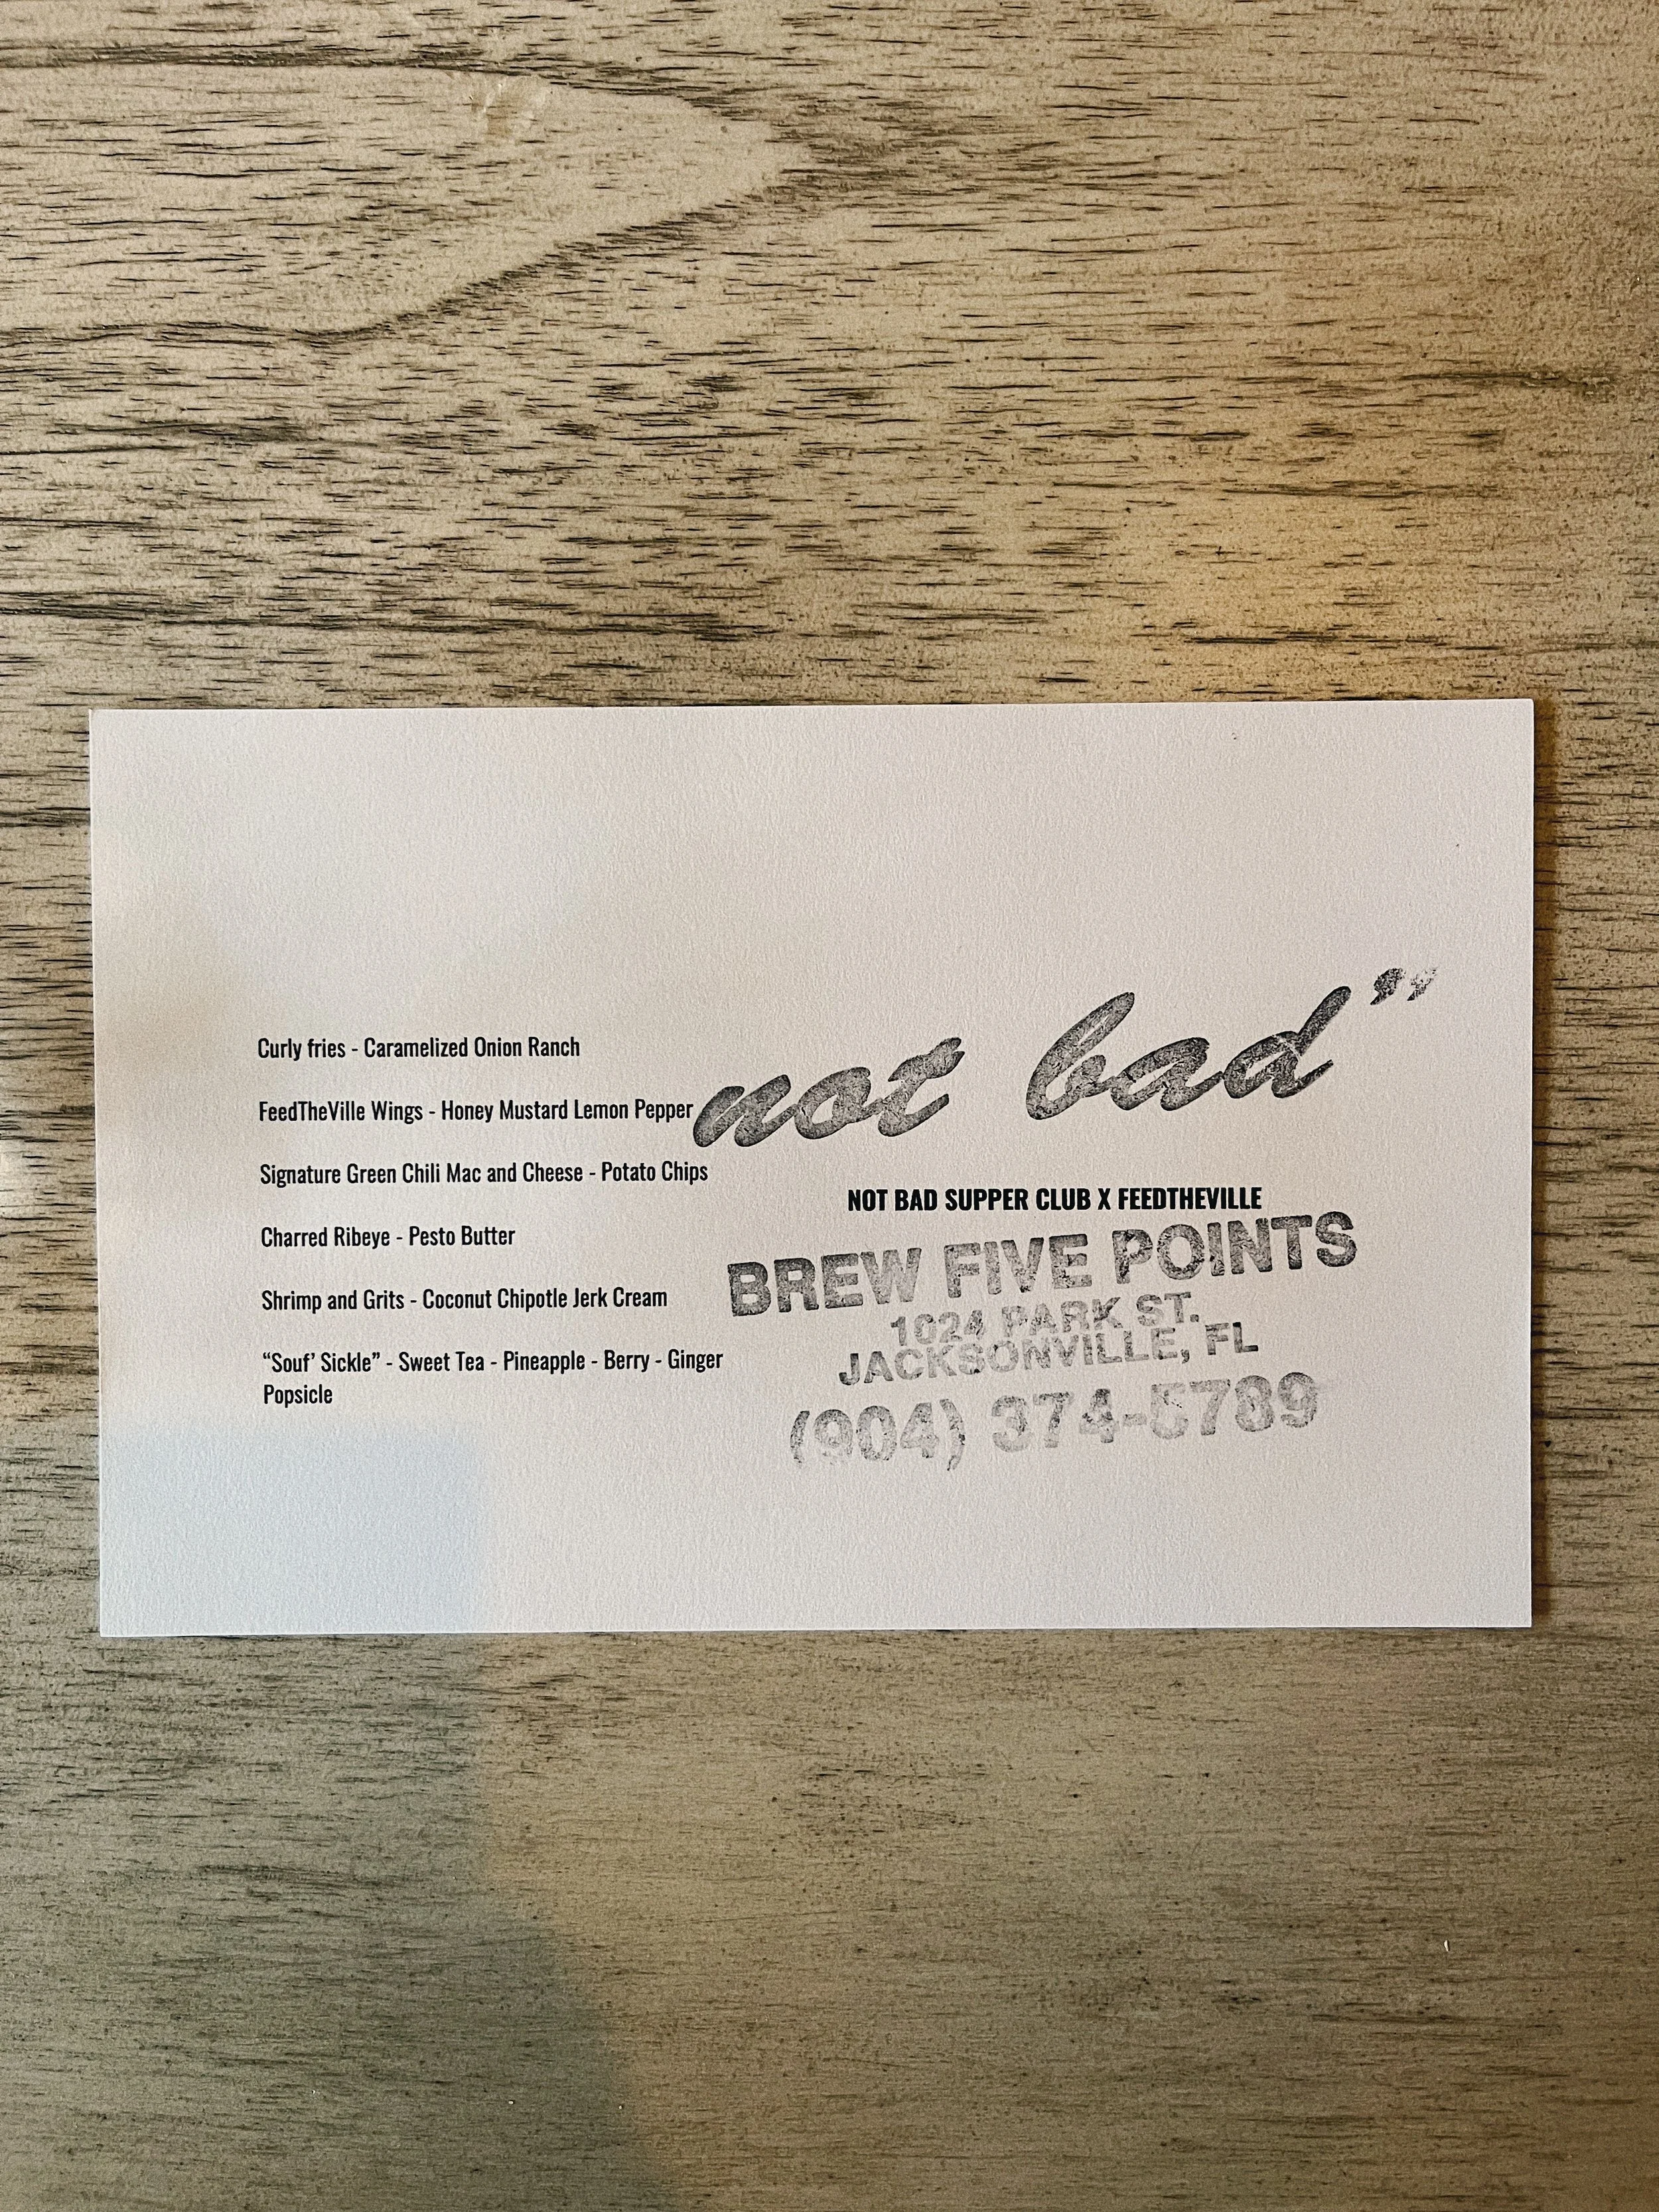 Curly fries - Caramelized Onion Ranch
FeedTheVille Wings - Honey Mustard Lemon Pepper
Signature Green Chili Mac and Cheese - Potato Chips
Charred Ribeye - Pesto Butter
Shrimp and Grits - Coconut Chipotle Jerk Cream
“Souf’ Sickle” - Sweet Tea - Pineapple - Berry - Ginger
Popsicle
not bad”
NOT BAD SUPPER CLUB X FEEDTHEVILLE
BREW FIVE POINTS
1024 PARK ST.
JACKSONVILLE, FL
(904) 374-5789